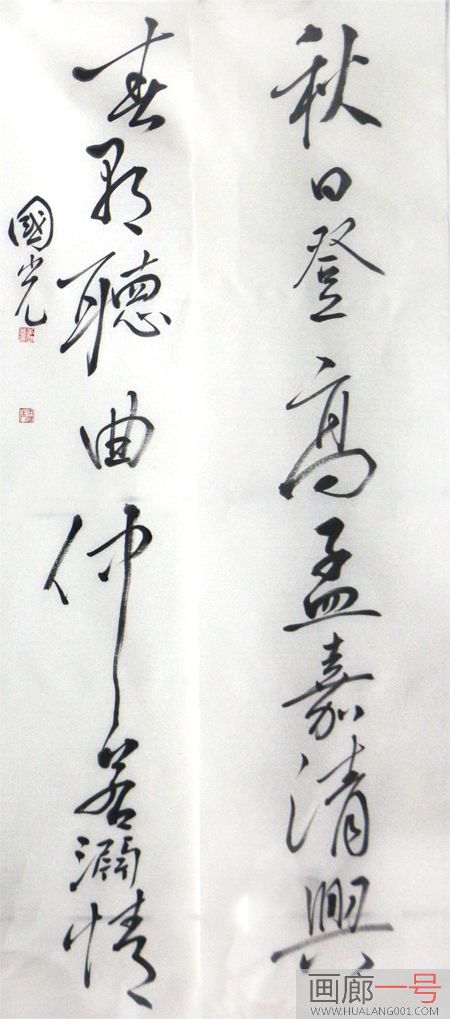 秋日登高孟嘉清興
春聽曲仲若情
國光
画廊一号
WWW.HUALANG001.COM